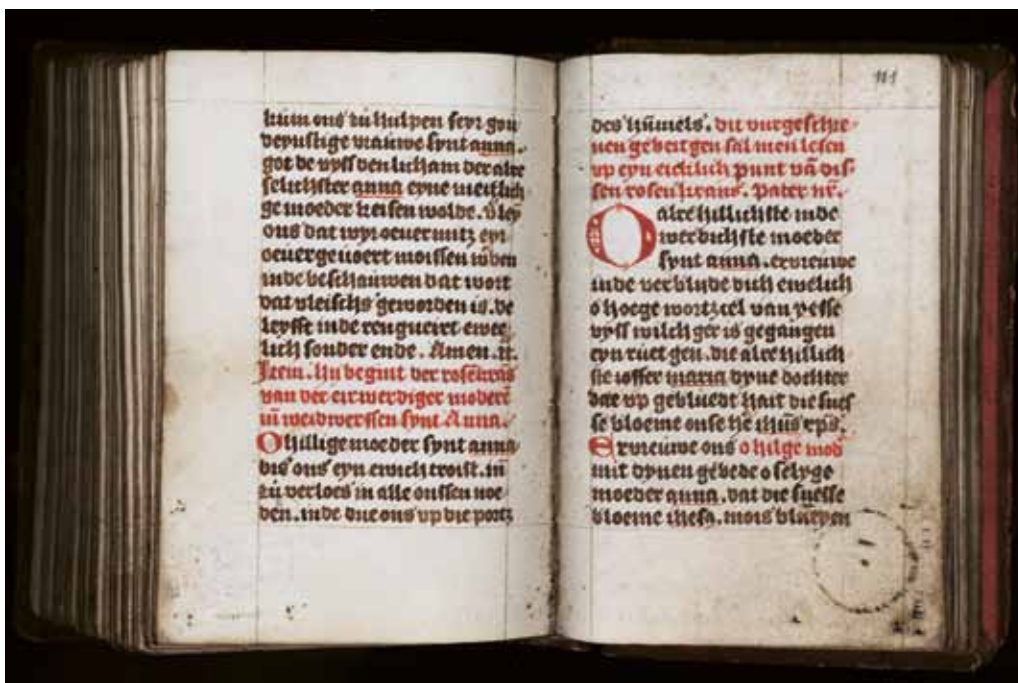 kum ons zu hulpen seyr gou
deynstige vrauwe synt anna.
got de vyss den licham der alre
selichster anna eyne meitlich
ge moeder keisen wolde. v'ley
ons dat wyr oeuermitz eyn
oeuergeuoert moissen w'den
inde beschauwen dat wort
dat vleischs geworden is. de
leyfft inde rengneirt ewe
lich sonder ende. Amen.
Item. hy begint der rosēkrās
van der eirwerdiger moderē
synt Anna.
O hillige moeder synt anna
bis ons eyn ewich troist. in
zu verloes in alle onssen noe
den. inde due ons vp die portz
111
des hūmels. dit vurgeschre
uen gebeitgen sal men lesen
vp eyn eicklich punt vā dis
sen rosen krans. Pater nr.
O alre hillichste inde
werdichste moeder
synt anna. ervreuwe
inde verblyde dich ewelich
o hoege wortzcel van yesse
vyss wilch ger is gegangen
eyn rūet gen. die alre hillich
ste ioffer maria dyne dochter
dae vp gebluedt hait die sues
se bloeme onse he ihūs xps.
Ervreuwe ons o hilge mod
mit dynen gebede o selyge
moeder anna. dat die suesse
bloeme ihesu. mois bluepen